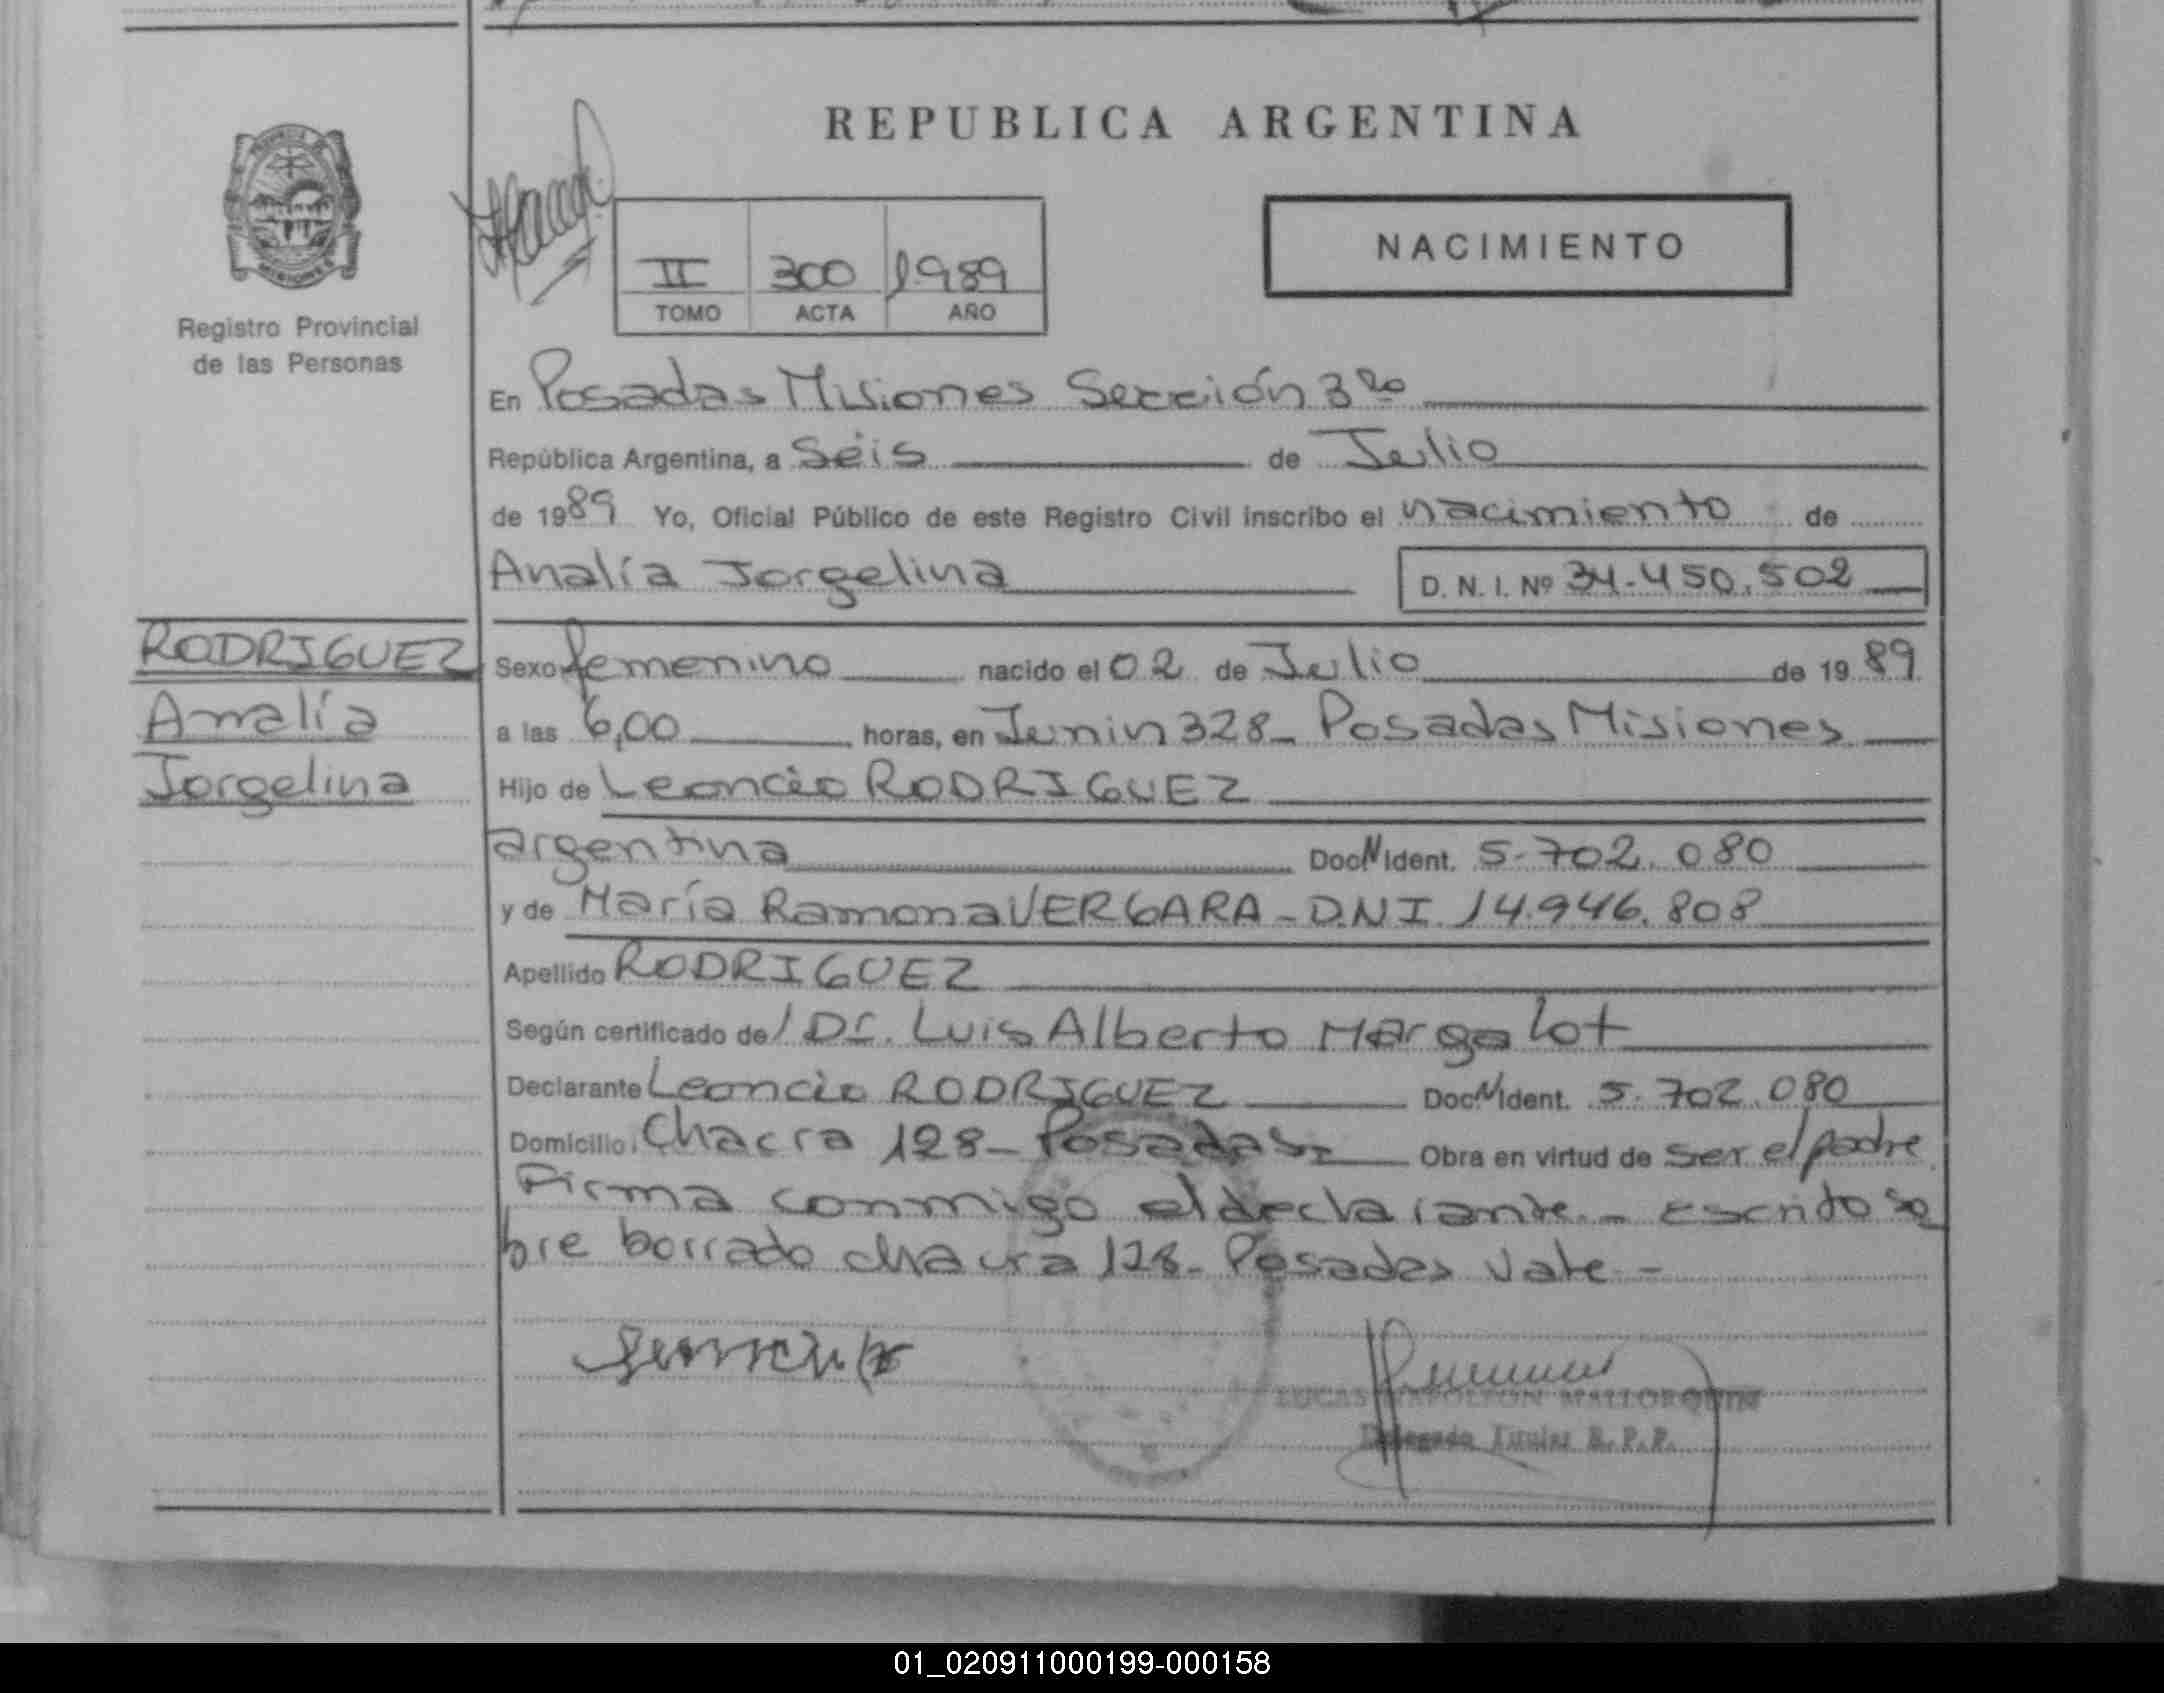 REPUBLICA ARGENTINA
NACIMIENTO
II 300 1989
TOMO ACTA AÑO
Registro Provincial
de las Personas
En Posadas Misiones Sección 3ra
República Argentina, a Seis de Julio
de 1989 Yo, Oficial Público de este Registro Civil inscribo el nacimiento de
Analía Jorgelina D. N. I. Nº 34.450.502
RODRIGUEZ
Analía
Jorgelina
Sexo femenino nacido el 02 de Julio de 1989
a las 6,00 horas, en Junin 328 - Posadas Misiones
Hijo de Leoncio RODRIGUEZ
argentina Doc N Ident. 5.702.080
y de María Ramona VERGARA - D.N.I. 14.946.808
Apellido RODRIGUEZ
Según certificado de/ Dr. Luis Alberto Margalot
Declarante Leoncio RODRIGUEZ Doc N Ident. 5.702.080
Domicilio Chacra 128 - Posadas Obra en virtud de ser el padre
Firma conmigo el declarante. - Escrito so
bre borrado chacra 128 - Posadas Vale -
LUCAS NAPOLEON MALLORQUIN
Delegado Titular R.P.P.
01_020911000199-000158